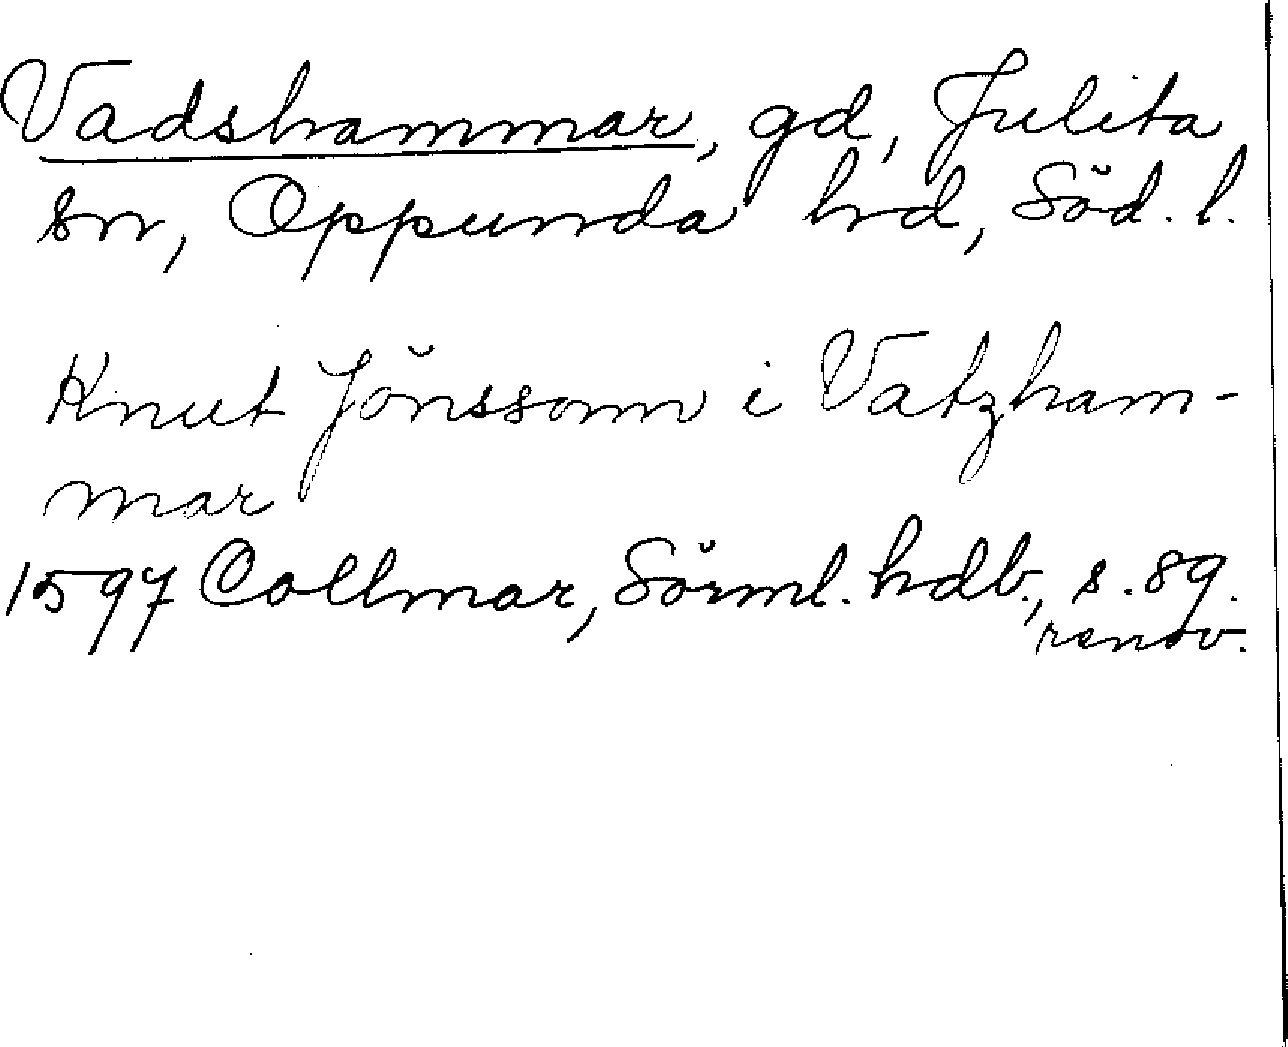 Vadshammar, gd, Julita
sn, Oppunda hd, Söd. l.
Knut Jönsson i Vatzham-
mar
1597 Collmar, Sörml. hdb., s. 89.
renov.